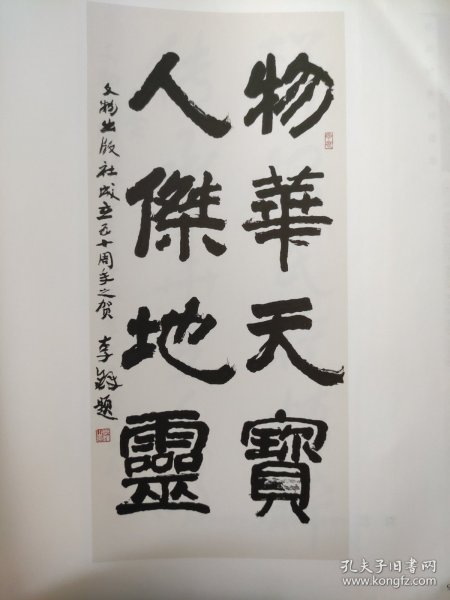 物華天寶
人傑地靈
文物出版社成立五十周年之贺
李鐸題
孔夫子旧书网
www.kongfz.com